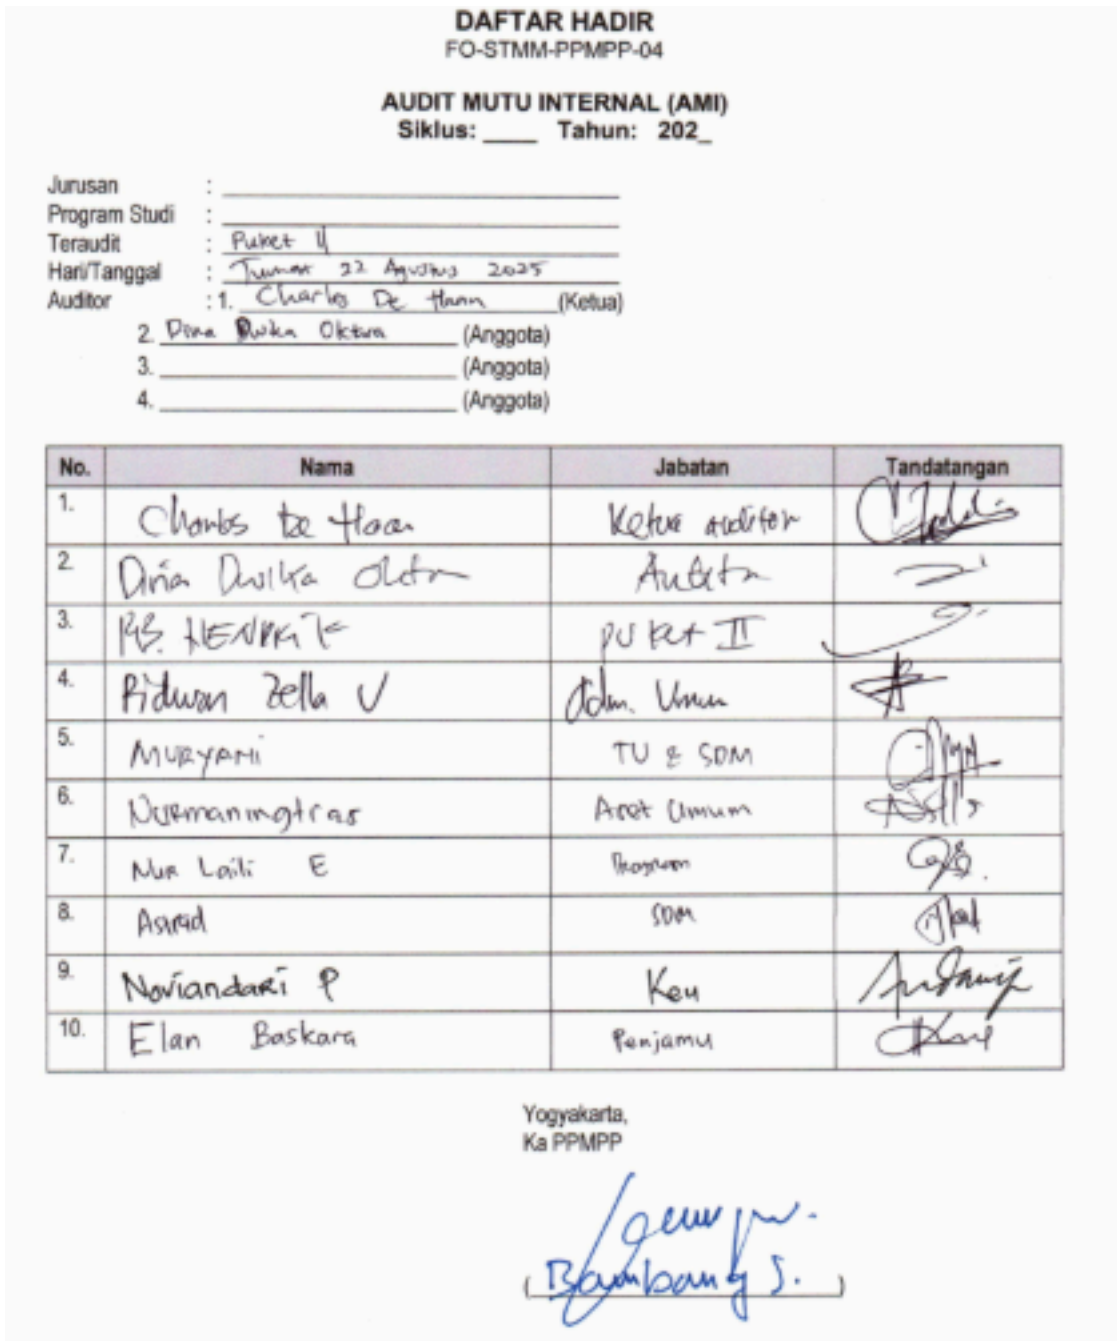 DAFTAR HADIR
FO-STMM-PPMPP-04
AUDIT MUTU INTERNAL (AMI)
Siklus: ____ Tahun: 202_
Jurusan :
Program Studi :
Teraudit : Puket II
Hari/Tanggal : Jumat 22 Agustus 2025
Auditor : 1. Charles De Haan (Ketua)
2. Dina Dwika Oktora (Anggota)
3. (Anggota)
4. (Anggota)
No. Nama Jabatan Tandatangan
1. Charles De Haan Ketua auditor
2. Dina Dwika
3. RB. HENDRI Puket II
4. Ridwan Zella V Adm. Umum
5. MURYANI TU & SDM
6. Nurmaningtias Aset Umum
7. Nur Laili E Program
8. SDM
9. Noviandari P Keu
10. Elan Baskara Penjamu
Yogyakarta,
Ka PPMPP
(Bambang S.)